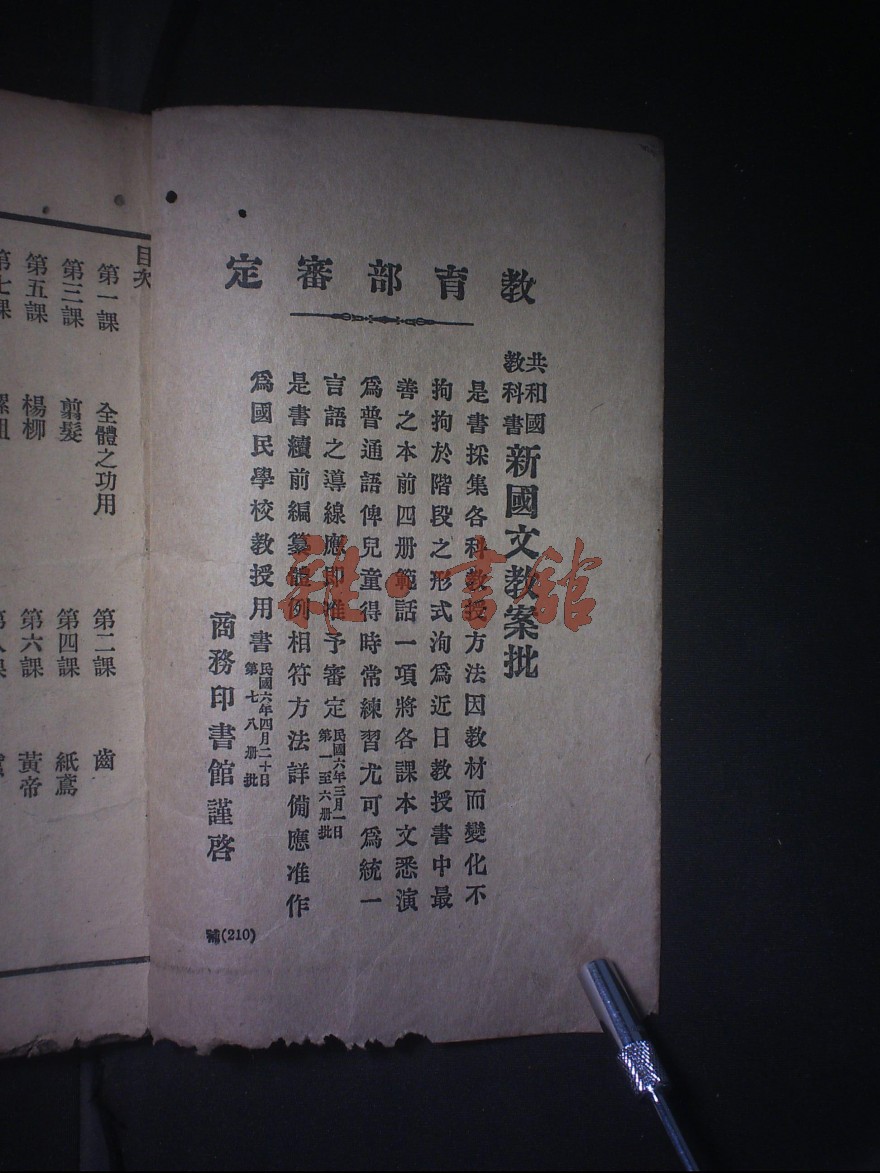 教育部審定
共和國
教科書
新國文教案批
是書採集各科教授方法因教材而變化不
拘拘於階段之形式洵爲近日教授書中最
善之本前四册範話一項將各課本文悉演
爲普通語俾兒童得時常練習尤可爲統一
言語之導線應即准予審定
民國六年三月一日
第一至六册批
是書續前編纂體例相符方法詳備應准作
爲國民學校教授用書
民國六年四月二十日
第七八册批
商務印書館謹啓
補(210)
目次
第一課 全體之功用 第二課 齒
第三課 翦髮 第四課 紙鳶
第五課 楊柳 第六課 黃帝
第七課
雜·書館